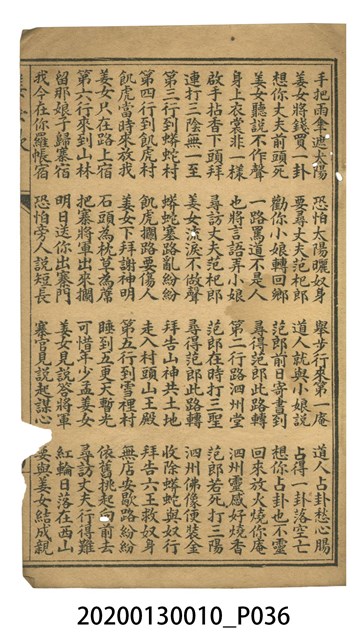 手把雨傘遮太陽 恐怕太陽曬奴身 舉步行來第一庵 道人占卦愁心腸
姜女將錢買一卦 要尋丈夫范杞郎 道人就與小娘說 占得一卦落空亡
想你丈夫前頭死 勸你小娘轉回鄉 范郎前日寄書到 想你占卦也不靈
姜女聽說不作聲 一路罵道不是人 尋得范郎此路轉 回來放火燒你庵
身上衣裳非一樣 也將言語弄小娘 第二行路泗州堂 泗州靈感好燒香
啟手拈香下頭拜 尋訪丈夫范杞郎 范郎在時打三聖 范郎若死打三陽
連打三陰無一至 姜女流淚不做聲 尋得范郎此路轉 泗州佛像便裝金
第三行到蟒蛇村 蟒蛇塞路亂紛紛 拜告山神共土地 收除蟒蛇與奴行
第四行到飢虎村 飢虎攔路要傷人 走入村頭山王殿 拜告六王救奴身
飢虎當時來放我 姜女下拜謝神明 第五行到雪裡村 無店安歇路紛紛
姜女只在路上宿 石頭為枕草為蓆 睡到五更天暫光 依舊挑起向前去
第六行來到山林 把寨將軍出來攔 可惜年少孟姜女 尋訪丈夫行得難
留那娘子歸寨宿 明日送你出寨門 姜女見說答將軍 紅輪日落在西山
我今在你羅帳宿 恐怕旁人說短長 寨官見說起謀心 要與姜女結成親
20200130010_P036